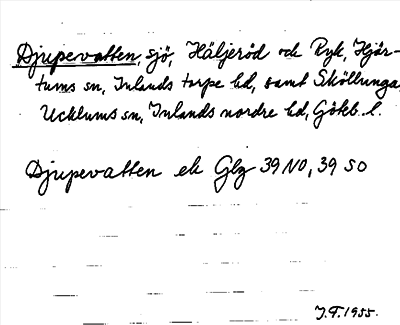 Djupevatten, sjö, Häljeröd och Ryk, Hjär-
tums sn, Inlands torpe hd, samt Sköllunga,
Ucklums sn, Inlands nordre hd, Göteb. l.
Djupevatten ek Glg 39 NO, 39 SO
J.F. 1955.